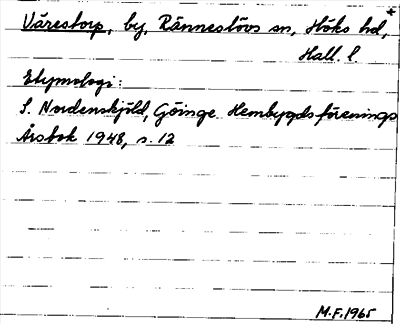 Vårestorp, by, Rännestövs sn, Höks hd,
Hall. l.
Etymologi:
S. Nordenskjöld, Göinge Hembygdsförenings
Årsbok 1948, s. 12
M.F. 1965